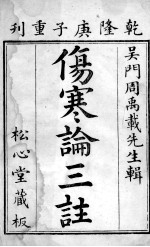 乾隆庚子重刊
吳門周禹載先生輯
傷寒論三註
松心堂藏板